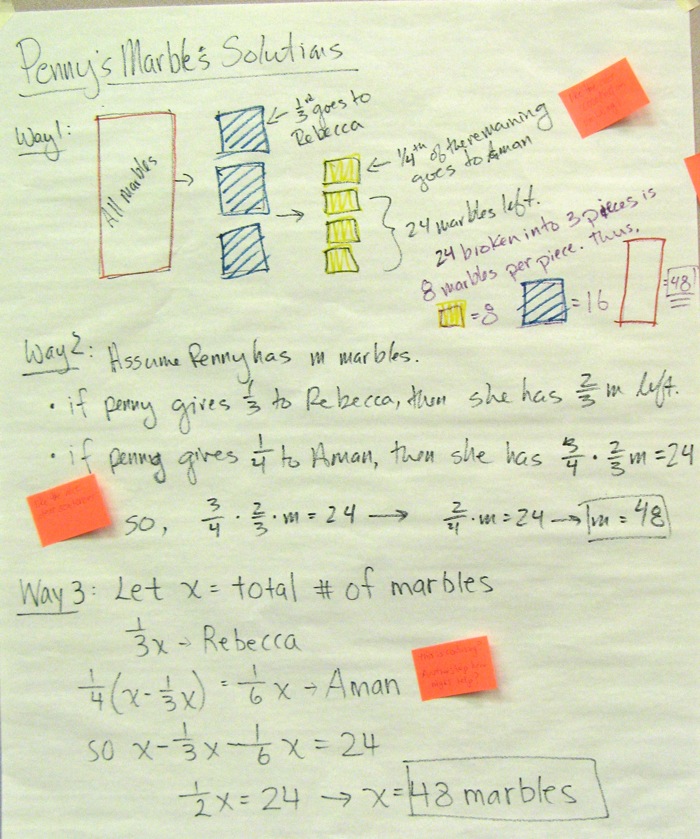 Penny's Marble's Solutions
Way 1:
All marbles
1/3rd goes to
Rebecca
1/4th of the remaining
goes to Aman
24 marbles left.
24 broken into 3 pieces is
8 marbles per piece. Thus,
=8
=16
=48
Way 2: Assume Penny has m marbles.
• if penny gives 1/3 to Rebecca, then she has 2/3 m left.
• if penny gives 1/4 to Aman, then she has 3/4 · 2/3 m = 24
so, 3/4 · 2/3 · m = 24 → 2/4 · m = 24 → m = 48
Way 3: Let x = total # of marbles
1/3x → Rebecca
1/4(x - 1/3x) = 1/6 x → Aman
so x - 1/3 x - 1/6 x = 24
1/2 x = 24 → x = 48 marbles